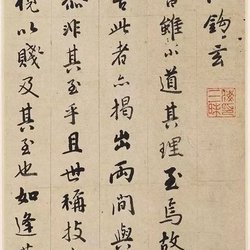 鈎玄
雖小道其理至焉故
此者亦揭出兩間與
非其至乎且世稱技
以賤及其至也如逢